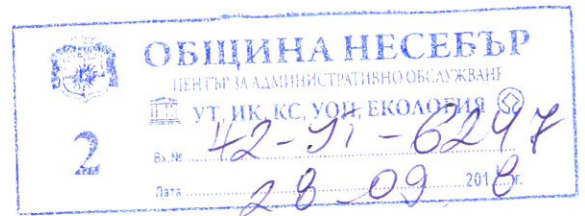 ОБЩИНА НЕСЕБЪР
ЦЕНТЪР ЗА АДМИНИСТРАТИВНО ОБСЛУЖВАНЕ
УТ, ИК, КС, УОП, ЕКОЛОГИЯ
2
Вх.№ 42-УТ-6297
Дата 28-09 2018 г.